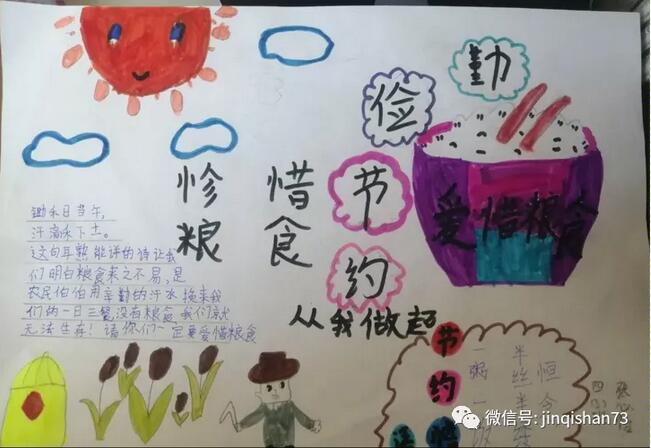 勤俭
节约
惨惜
粮食
爱惜粮食
从我做起
锄禾日当午，
汗滴禾下土。
这句耳熟能详的诗让我
们明白粮食来之不易，是
农民伯伯用辛勤的汗水换来我
们的一日三餐，没有粮食我们就
无法生存！请你们一定要爱惜粮食
节约
一粥一饭
半丝半
恒念
四
微信号: jinqishan73